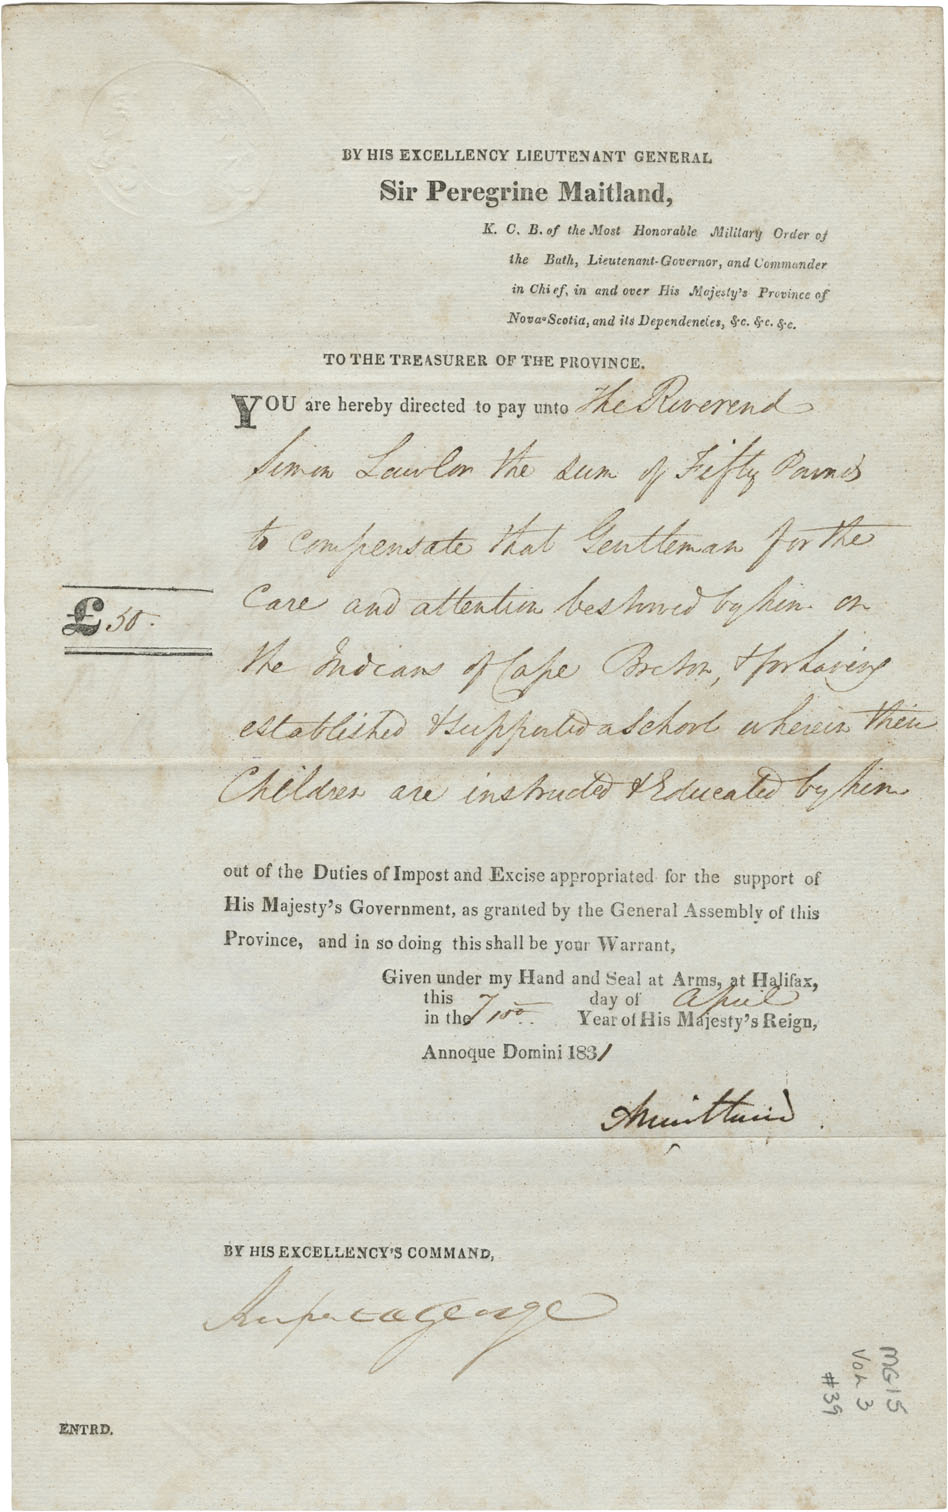 BY HIS EXCELLENCY LIEUTENANT GENERAL
Sir Peregrine Maitland,
K. C. B. of the Most Honorable Military Order of
the Bath, Lieutenant-Governor, and Commander
in Chief, in and over His Majesty's Province of
Nova-Scotia, and its Dependencies, &c. &c. &c.
TO THE TREASURER OF THE PROVINCE.
YOU are hereby directed to pay unto The Reverend
Simon Lawlor the sum of Fifty Pounds
to compensate that Gentleman for the
Care and attention bestowed by him on
£ 50.
the Indians of Cape Breton, & for having
established & supported a School wherein their
Children are instructed & Educated by him
out of the Duties of Impost and Excise appropriated for the support of
His Majesty's Government, as granted by the General Assembly of this
Province, and in so doing this shall be your Warrant,
Given under my Hand and Seal at Arms, at Halifax,
this day of April
in the Year of His Majesty's Reign,
Annoque Domini 1831
PMaitland
BY HIS EXCELLENCY'S COMMAND,
Rupert D George
ENTRD.
MG15
Vol 3
#39